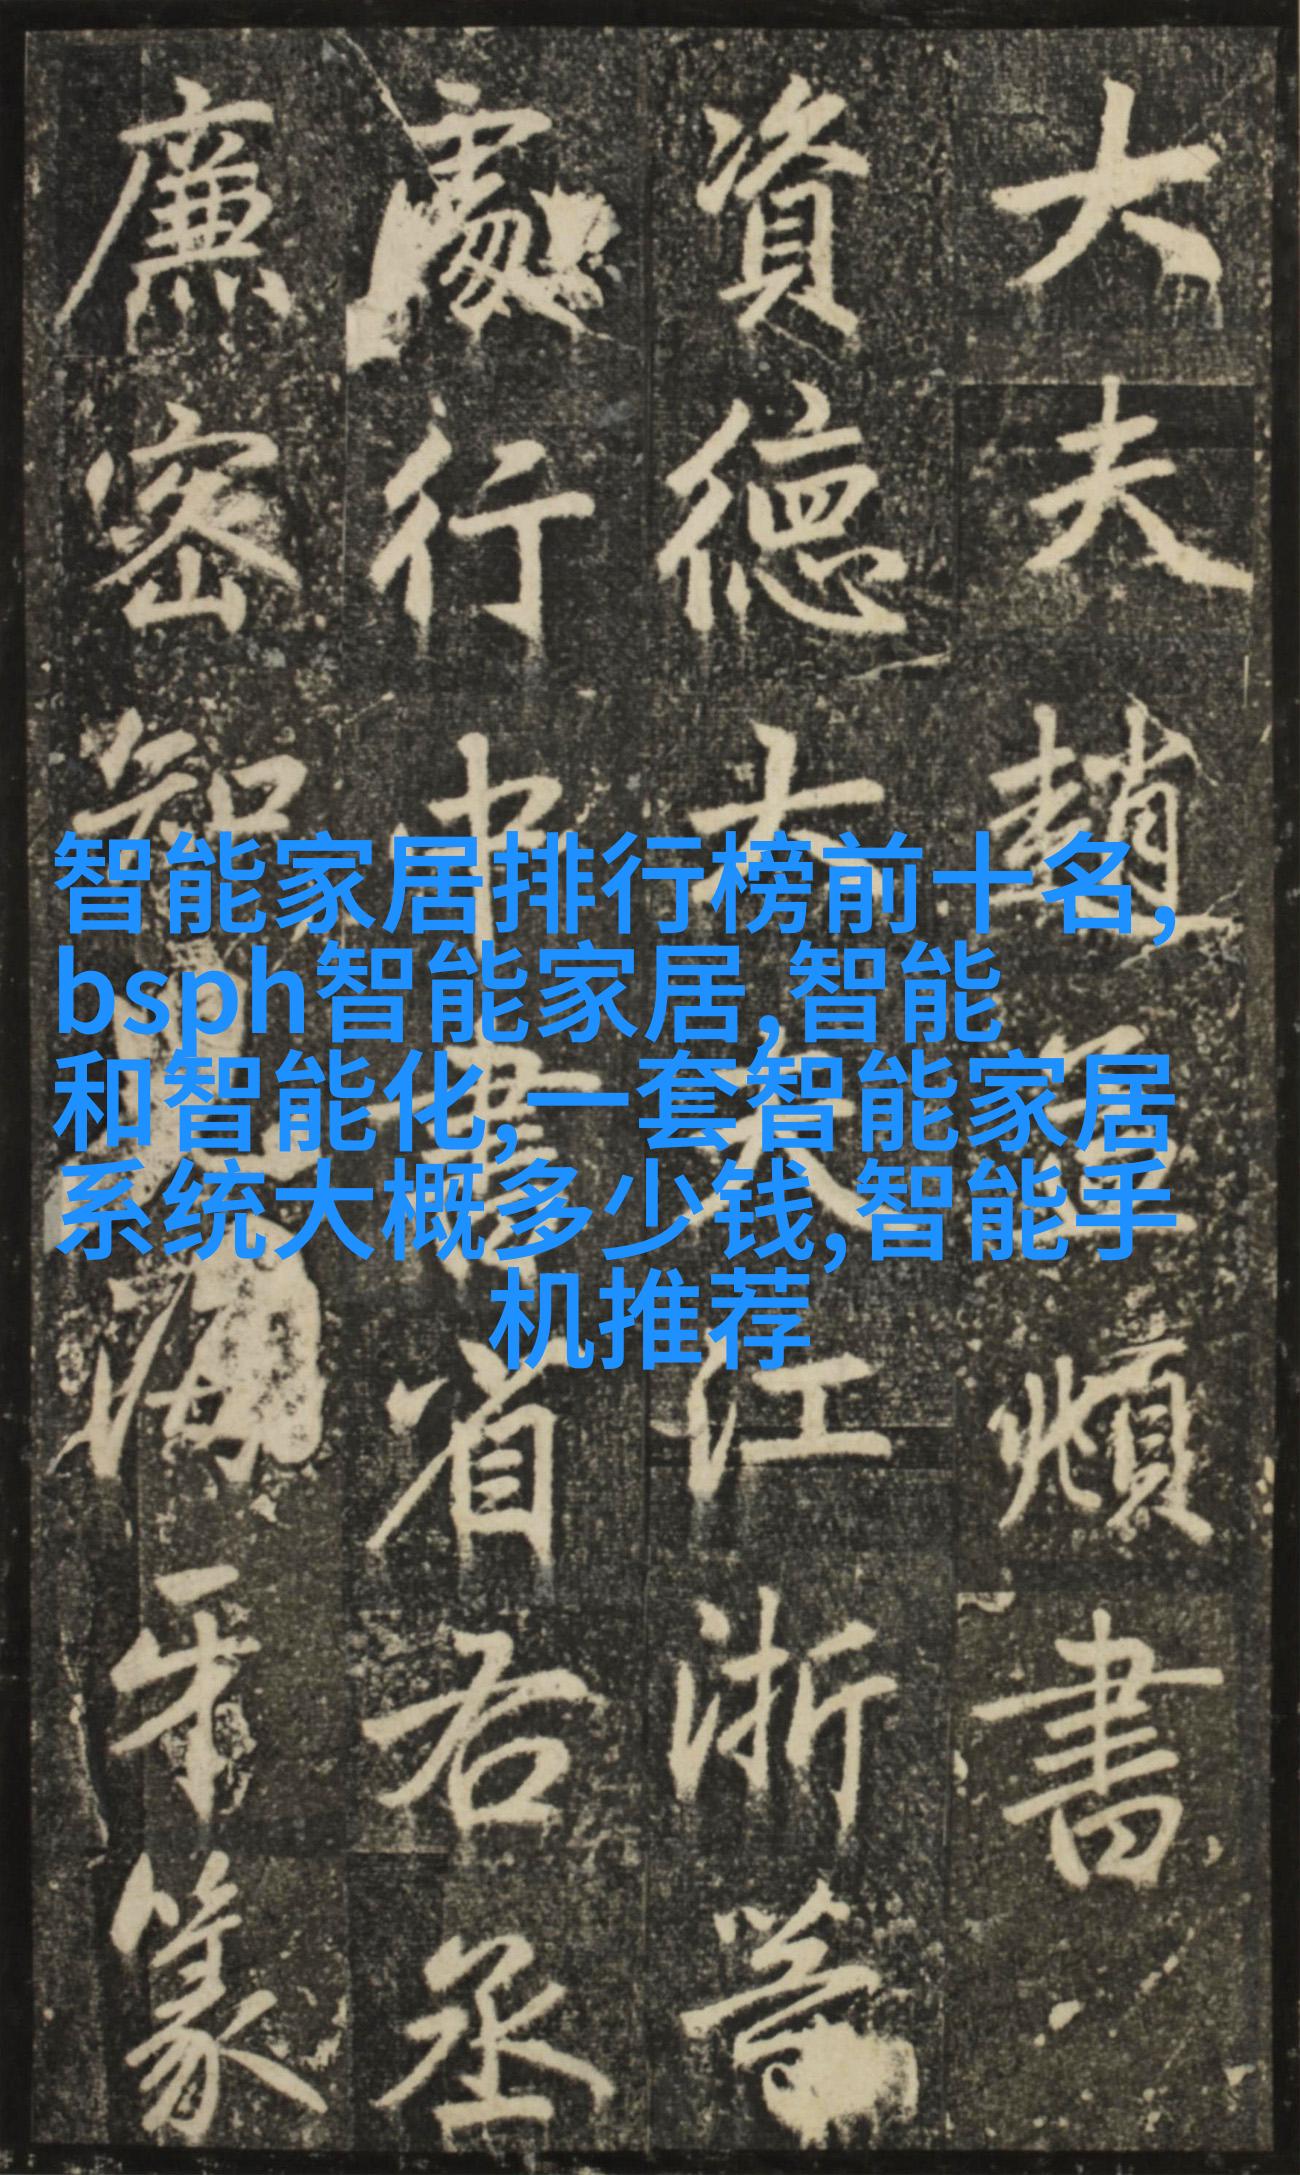 大夫趙孟頫書
資德大夫江浙等
處行中書省右丞
廉密知兒海牙篆
智能家居排行榜前十名,
bsph智能家居,智能
和智能化,一套智能家居
系统大概多少钱,智能手
机推荐